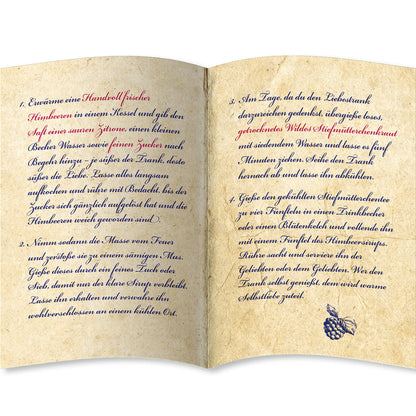 1. Erwärme eine Handvoll frischer
Himbeeren in einem Kessel und gib den
Saft einer sauren Zitrone, einen kleinen
Becher Wasser sowie feinen Zucker nach
Begehr hinzu – je süßer der Trank, desto
süßer die Liebe. Lasse alles langsam
aufkochen und rühre mit Bedacht, bis der
Zucker sich gänzlich aufgelöst hat und die
Himbeeren weich geworden sind).
2. Nimm sodann die Masse vom Feuer
und zerstoße sie zu einem sämigen Mus.
Gieße dieses durch ein feines Tuch oder
Sieb, damit nur der klare Sirup verbleibt.
Lasse ihn erkalten und verwahre ihn
wohlverschlossen an einem kühlen Ort.
3. Am Tage, da du den Liebestrank
darzureichen gedenkst, übergieße loses,
getrocknetes Wildes Stiefmütterchenkraut
mit siedendem Wasser und lasse es fünf
Minuten ziehen. Seihe den Trank
hernach ab und lasse ihn abkühlen.
4. Gieße den gekühlten Stiefmütterchentee
zu vier Fünfteln in einen Trinkbecher
oder einen Blütenkelch und vollende ihn
mit einem Fünftel des Himbeersirups.
Rühre sacht und serviere ihn der
Geliebten oder dem Geliebten. Wer den
Trank selbst genießt, dem wird warme
Selbstliebe zuteil.